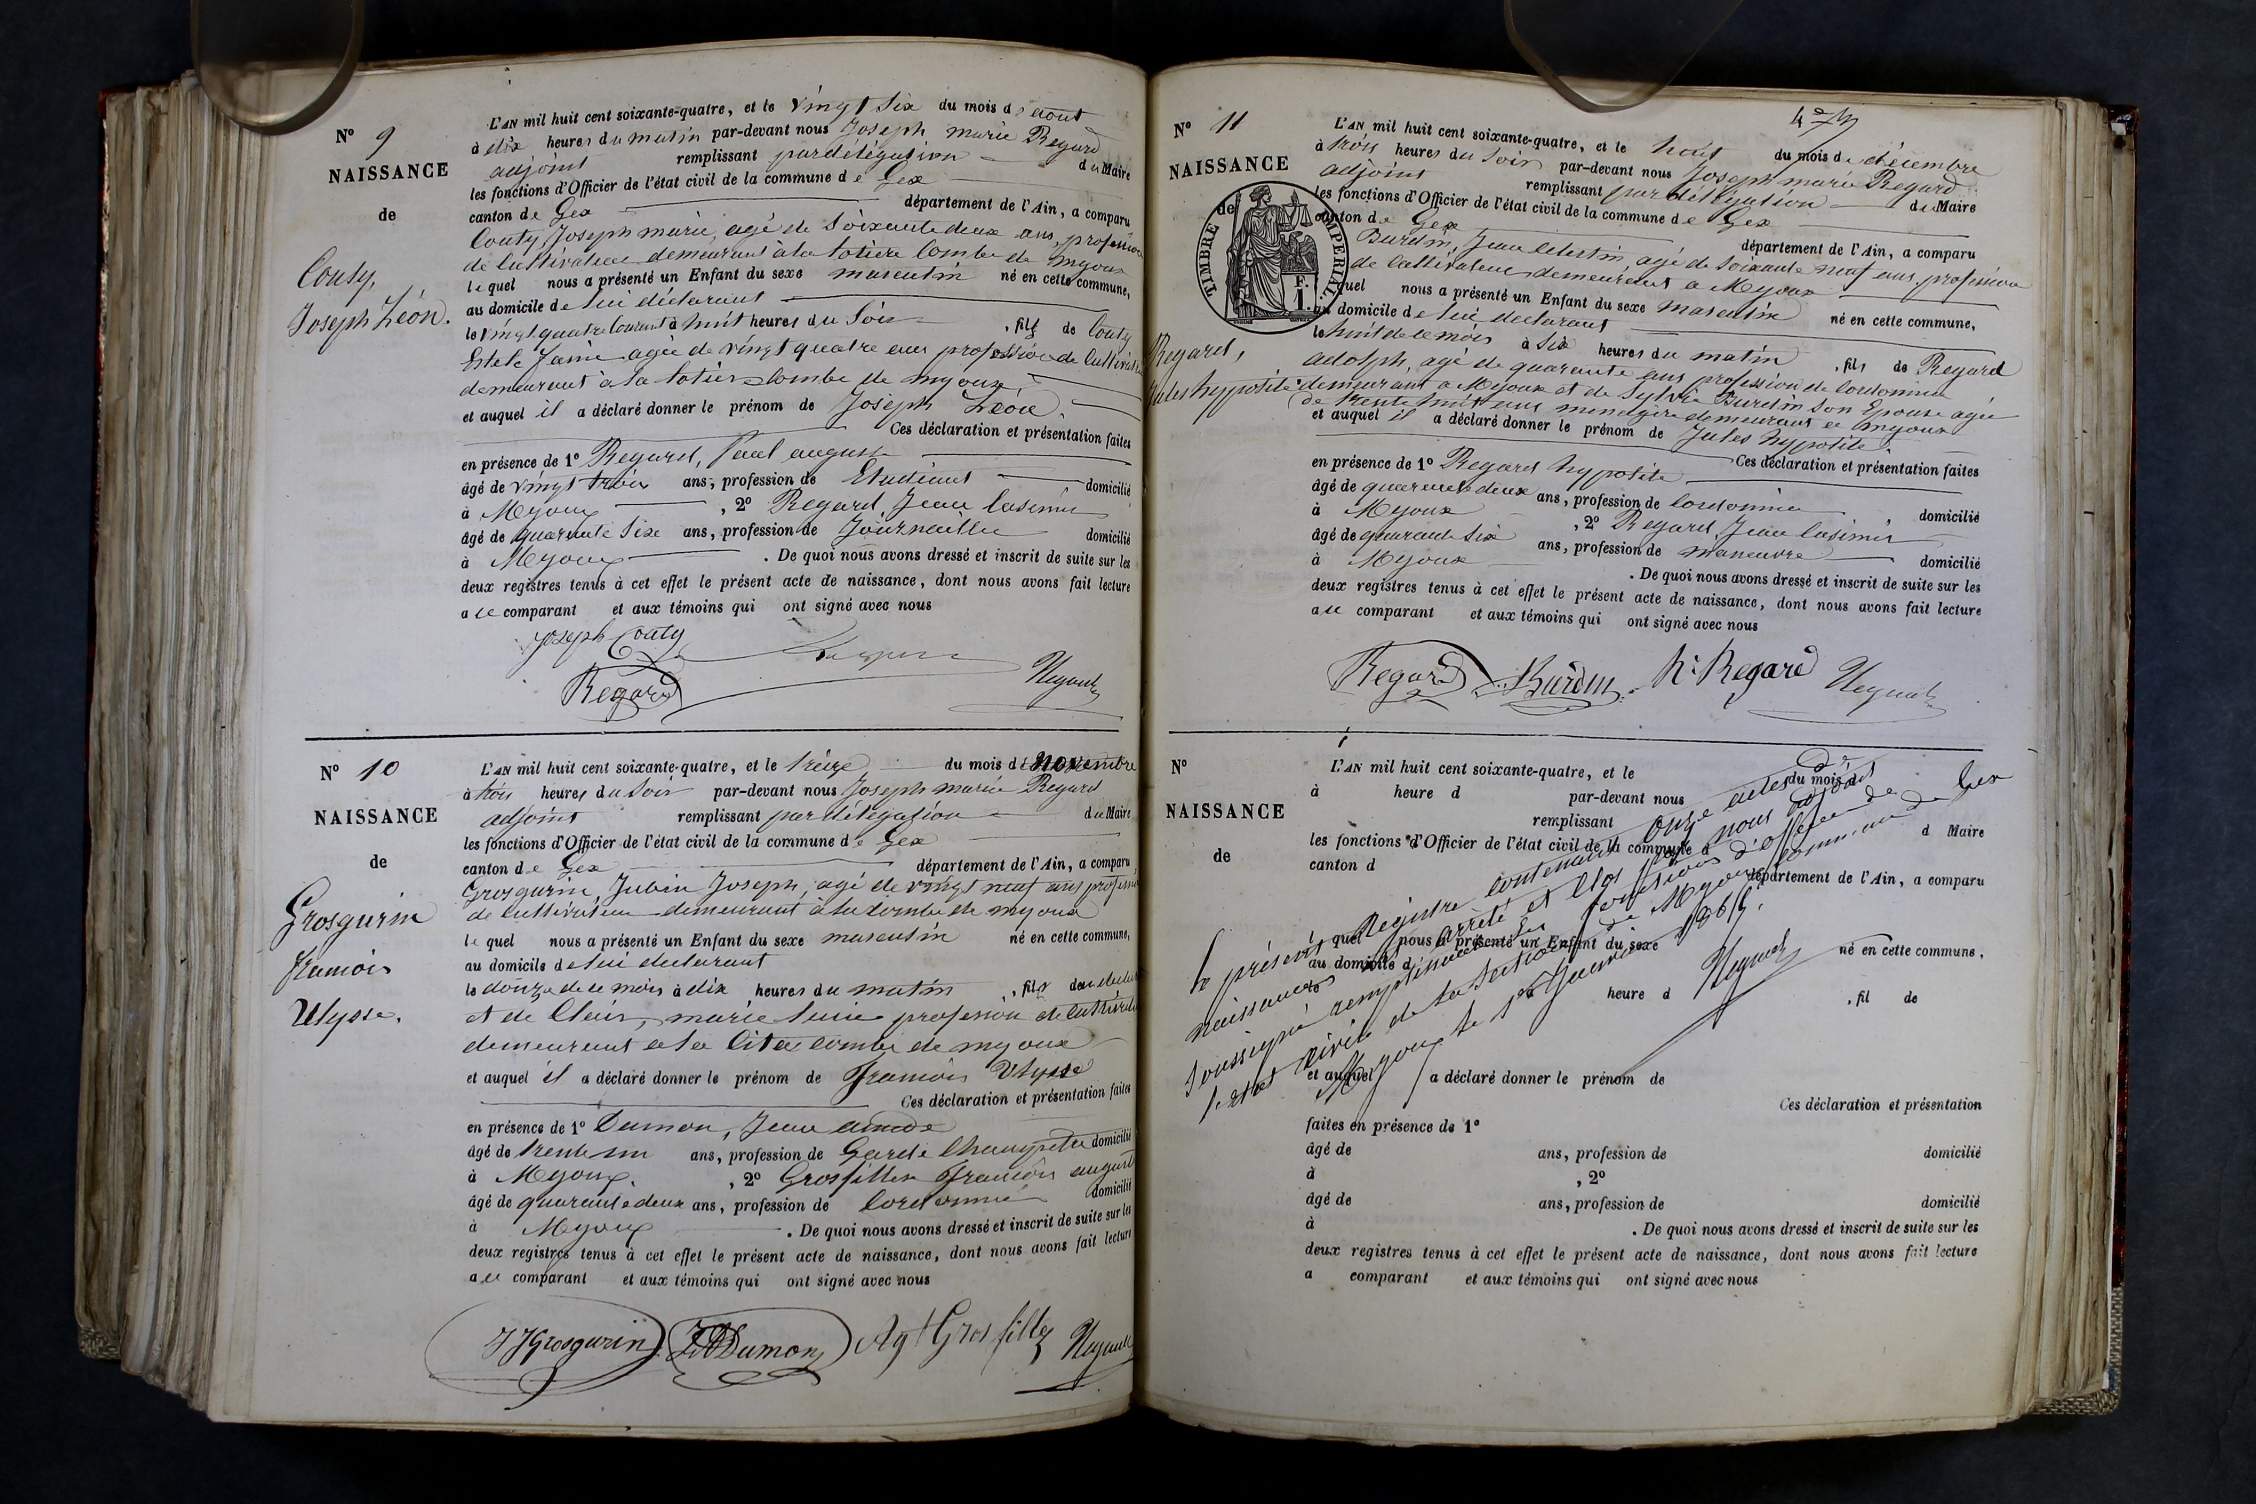 N° 9
NAISSANCE
de
Couty,
Joseph Léon.
L'AN mil huit cent soixante-quatre, et le vingt six du mois d'aout
à dix heures du matin par-devant nous Joseph marie Regard
adjoint remplissant par délégation du Maire
les fonctions d'Officier de l'état civil de la commune de Gex
canton de Gex département de l'Ain, a comparu
Couty, Joseph marie, agé de soixante deux ans, profession
de cultivateur demeurant à la combe de myoux
lequel nous a présenté un Enfant du sexe masculin né en cette commune,
au domicile de lui déclarant
le vingt quatre courant à huit heures du soir, fils de Couty
agée de vingt quatre ans profession de
demeurant à la combe de myoux,
et auquel il a déclaré donner le prénom de Joseph Léon.
Ces déclaration et présentation faites
en présence de 1° Regard, Paul auguste
âgé de vingt trois ans, profession de Etudiant domicilié
à Myoux, 2° Regard, Jean Casimir
âgé de quarante six ans, profession de Journaillie domicilié
à Myoux. De quoi nous avons dressé et inscrit de suite sur les
deux registres tenus à cet effet le présent acte de naissance, dont nous avons fait lecture
au comparant et aux témoins qui ont signé avec nous
Joseph Couty
Regard
N° 10
NAISSANCE
de
Grosgurin
francois
Ulysse.
L'AN mil huit cent soixante-quatre, et le treize du mois de novembre
à trois heures du soir par-devant nous Joseph marie Regard
adjoint remplissant par délégation du Maire
les fonctions d'Officier de l'état civil de la commune de Gex
canton de Gex département de l'Ain, a comparu
Grosgurin, Jubin Joseph, agé de vingt neuf ans profession
de cultivateur demeurant à la combe de myoux
lequel nous a présenté un Enfant du sexe masculin né en cette commune,
au domicile de lui declarant
le douze de ce mois à dix heures du matin, fils du
et de marie profession de
demeurant a la combe de myoux
et auquel il a déclaré donner le prénom de francois Ulysse
Ces déclaration et présentation faites
en présence de 1° Dumon, Jean
âgé de trente un ans, profession de Garde Champetre domicilié
à Myoux., 2° Grosfilley francois auguste
âgé de quarante deux ans, profession de Cordonnié domicilié
à Myoux. De quoi nous avons dressé et inscrit de suite sur les
deux registres tenus à cet effet le présent acte de naissance, dont nous avons fait lecture
au comparant et aux témoins qui ont signé avec nous
JJ Grosgurin Dumon Agt Grosfilley
N° 11
NAISSANCE
de
TIMBRE IMPERIAL
F.
1.
Regard,
Jules hyppolite
L'AN mil huit cent soixante-quatre, et le huit du mois de décembre
à trois heures du soir par-devant nous Joseph marie Regard
adjoint remplissant par délégation du Maire
les fonctions d'Officier de l'état civil de la commune de Gex
canton de Gex département de l'Ain, a comparu
Burdin, Jean Celestin, agé de soixante neuf ans, profession
de Cultivateur demeurant a Myoux
lequel nous a présenté un Enfant du sexe masculin né en cette commune,
au domicile de lui declarant
le huit de ce mois à six heures du matin, fils de Regard
adolph, agé de quarante ans profession de Cordonnier
demeurant a Myoux et de Sylvie Burdin son Epouse agée
de trente huit ans menagère demeurant a myoux
et auquel il a déclaré donner le prénom de Jules hyppolite.
Ces déclaration et présentation faites
en présence de 1° Regard hyppolite
âgé de quarante deux ans, profession de Cordonnier domicilié
à Myoux, 2° Regard, Jean Casimir
âgé de quarante six ans, profession de maneuvre domicilié
à Myoux. De quoi nous avons dressé et inscrit de suite sur les
deux registres tenus à cet effet le présent acte de naissance, dont nous avons fait lecture
au comparant et aux témoins qui ont signé avec nous
Regard Burdin h: Regard
N°
NAISSANCE
de
L'AN mil huit cent soixante-quatre, et le du mois d
à heure d par-devant nous
remplissant d Maire
les fonctions d'Officier de l'état civil de la commune d
canton d département de l'Ain, a comparu
lequel nous a présenté un Enfant du sexe né en cette commune,
au domicile d
heure d, fil de
et auquel a déclaré donner le prénom de
Ces déclaration et présentation
faites en présence de 1°
âgé de ans, profession de domicilié
à, 2°
âgé de ans, profession de domicilié
à. De quoi nous avons dressé et inscrit de suite sur les
deux registres tenus à cet effet le présent acte de naissance, dont nous avons fait lecture
a comparant et aux témoins qui ont signé avec nous
le présent Registre contenant onze actes de
naissances arrêté et clos par nous adjoint
soussigné remplissant les fonctions d'officier de
l'etat civil de la section de Myoux commune de Gex
Myoux le 1er Janvier 1865.